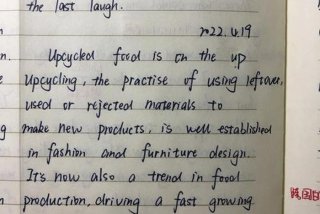 the last laugh.
2022.4.19
n. Upcycled food is on the up
Upcycling, the practise of using leftover,
used or rejected materials to
g make new products, is well established
in fashion and furniture design.
It's now also a trend in food
n production, driving a fast growing